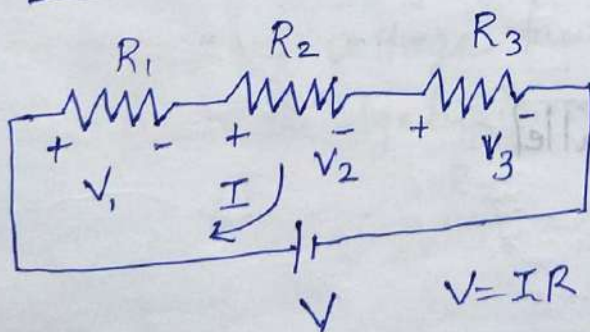 R₁ R₂ R₃
+ - + - + -
V₁ I V₂ V₃
V V=IR